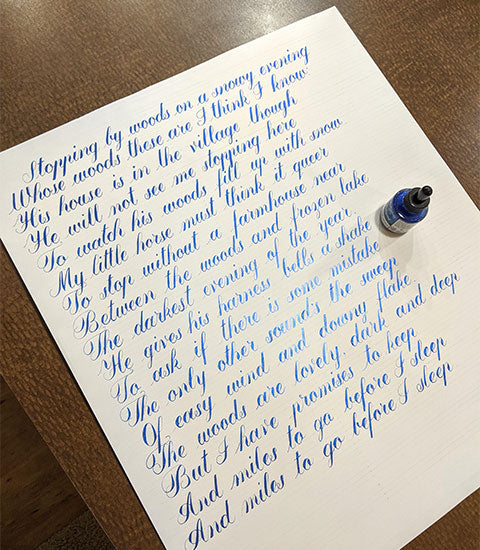 Stopping by woods on a snowy evening
Whose woods these are I think I know.
His house is in the village though
He will not see me stopping here
To watch his woods fill up with snow.
My little horse must think it queer
To stop without a farmhouse near
Between the woods and frozen lake
The darkest evening of the year.
He gives his harness bells a shake
To ask if there is some mistake
The only other sound's the sweep
Of easy wind and downy flake.
The woods are lovely, dark and deep
But I have promises to keep
And miles to go before I sleep
And miles to go before I sleep